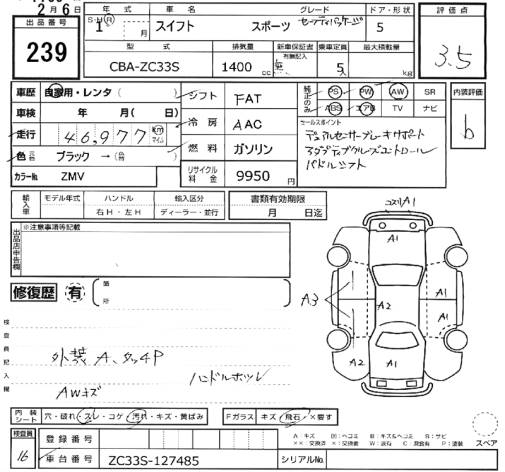 2月6日
出品番号
239
年式
車名
グレード
ドア・形状
評価点
S・H・R
1 月
スイフト スポーツ セーフティパッケージ
5
3.5
型式
排気量
新車保証書
有無記入
乗車定員
最大積載量
CBA-ZC33S
1400 cc
5 人
kg
車歴 自家用・レンタ( )
シフト FAT
純正のみ
PS PW AW SR
ABS エアB TV ナビ
内装評価
b
車検 年 月( 日)
冷房 AAC
セールスポイント
デュアルセンサーブレーキサポート
アダプティブクルーズコントロール
パドルシフト
走行 46,977 km マイル
燃料 ガソリン
色 ブラック →( )
カラーNo ZMV
リサイクル料金 9950 円
輸入車
モデル年式
ハンドル
右H・左H
輸入区分
ディーラー・並行
書類有効期限
月 日迄
出品店申告欄
※注意事項等記載
修復歴 有
箇所
コスリA1
A1
A3
A2
A1
A1
A2
A1
A1
検査員記入欄
外装 A、タッチP
AWキズ
ハンドルボツレ
内装シート
穴・破れ・スレ・コゲ・汚れ・キズ・黄ばみ
Fガラス キズ・飛石・×要す
検査員
16
登録番号
車台番号 ZC33S-127485
シリアルNo.
スペア